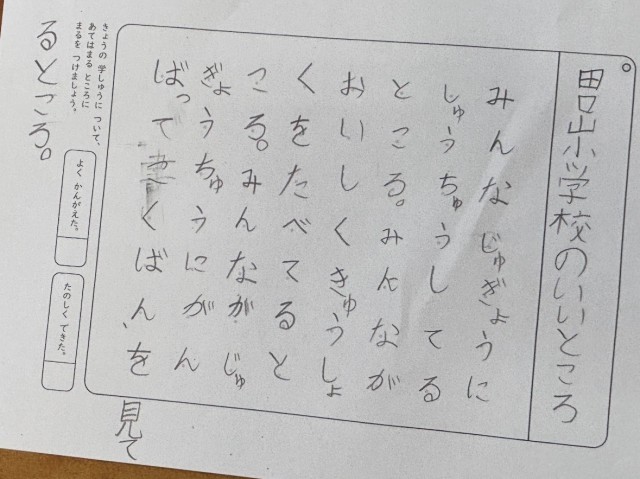 田山小学校のいいところ
みんなじゅぎょうに
しゅうちゅうしてる
ところ。みんなが
おいしくきゅうしょ
くをたべてると
ころ。みんながじゅ
ぎょうちゅうにがん
ばってこくばん、を
見て
るところ。
きょうの 学しゅうに ついて、
あてはまる ところに
まるを つけましょう。
よく かんがえた。
たのしく できた。